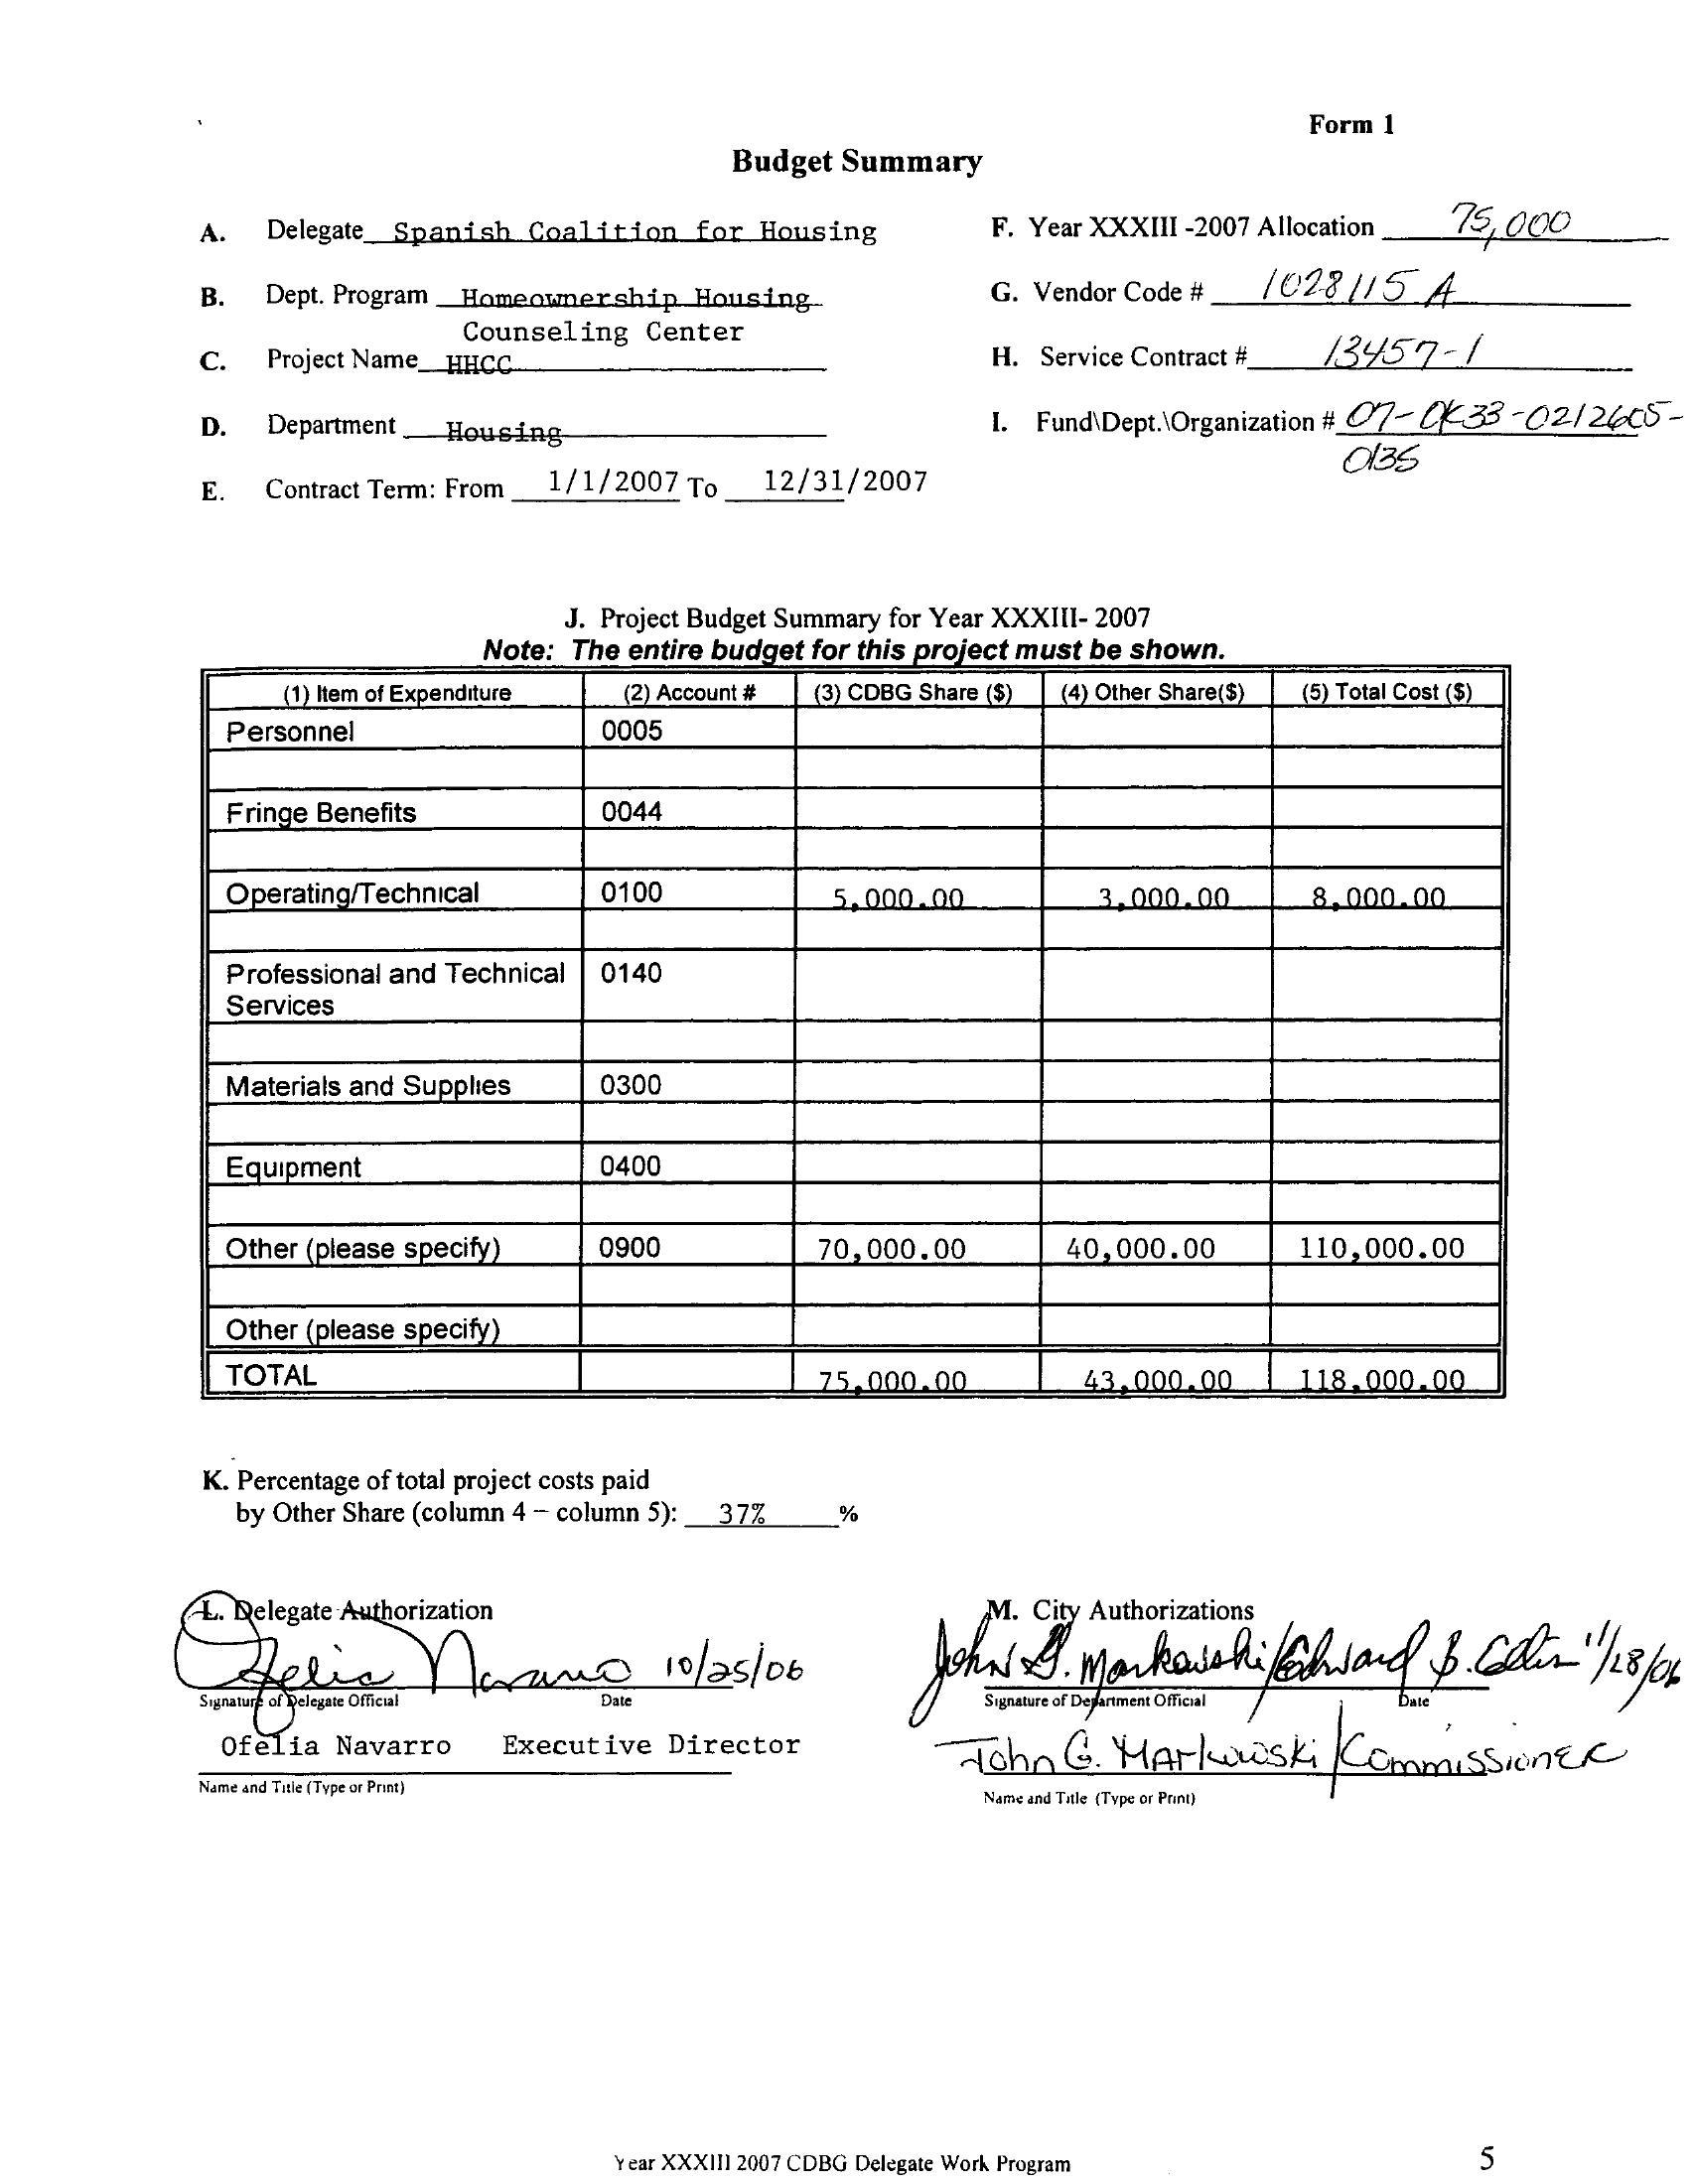 Form 1
Budget Summary
A. Delegate Spanish Coalition for Housing
F. Year XXXIII -2007 Allocation 75,000
B. Dept. Program Homeownership Housing
Counseling Center
G. Vendor Code # 1028115 A
C. Project Name HHCC
H. Service Contract # 13457-1
D. Department Housing
I. Fund\Dept.\Organization # 07-0K33-0212605-
0135
E. Contract Term: From 1/1/2007 To 12/31/2007
J. Project Budget Summary for Year XXXIII- 2007
Note: The entire budget for this project must be shown.
(1) Item of Expenditure (2) Account # (3) CDBG Share ($) (4) Other Share($) (5) Total Cost ($)
Personnel 0005
Fringe Benefits 0044
Operating/Technical 0100 5,000.00 3,000.00 8,000.00
Professional and Technical 0140
Services
Materials and Supplies 0300
Equipment 0400
Other (please specify) 0900 70,000.00 40,000.00 110,000.00
Other (please specify)
TOTAL 75,000.00 43,000.00 118,000.00
K. Percentage of total project costs paid
by Other Share (column 4 – column 5): 37% %
L. Delegate Authorization
Ofelia Navarro 10/25/06
Signature of Delegate Official Date
Ofelia Navarro Executive Director
Name and Title (Type or Print)
M. City Authorizations
John G. Markowski/Edward B. 11/28/06
Signature of Department Official Date
John G. Markowski/Commissioner
Name and Title (Type or Print)
Year XXXIII 2007 CDBG Delegate Work Program 5